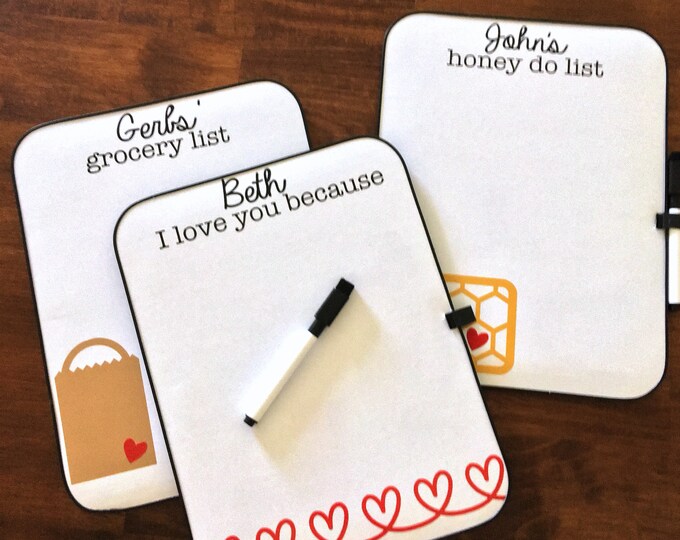 Gerbs'
grocery list
Beth
I love you because
John's
honey do list